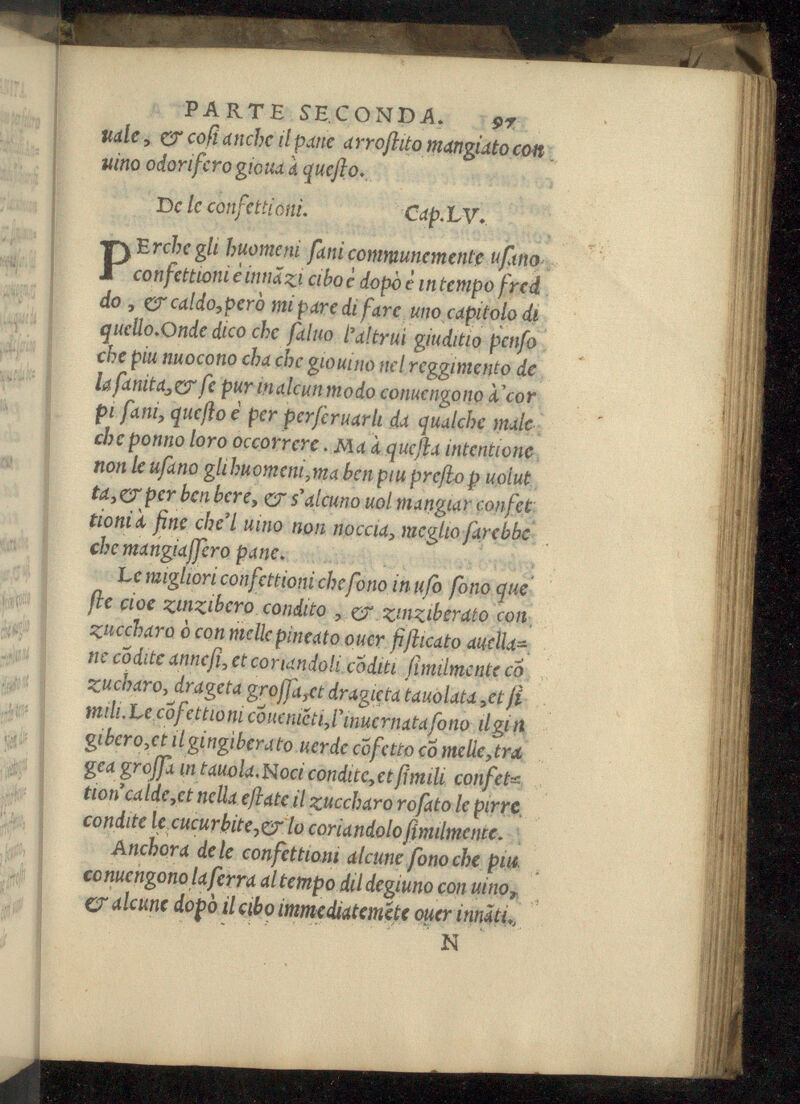 PARTE SECONDA. 97
uale, & cosi anche il pane arrostito mangiato con
uino odorifero gioua à questo.
De le confettioni. Cap.LV.
PErche gli huomeni sani communemente usano
confettioni è innãzi cibo è dopò è in tempo fred
do, & caldo, però mi pare di fare uno capitolo di
quello. Onde dico che saluo l'altrui giuditio penso
che piu nuocono cha che giouino nel reggimento de
la sanita, & se pur in alcun modo conuengono à'cor
pi sani, questo è per perseruarli da qualche male
che ponno loro occorrere. Ma à questa intentione
non le usano gli huomeni, ma ben piu presto p uolut
ta, & per ben bere, & s'alcuno uol mangiar confet
tioni à fine che'l uino non noccia, meglio sarebbe
che mangiassero pane.
Le migliori confettioni che sono in uso sono que
ste cioe zinzibero condito, & zinziberato con
zuccharo ò con melle pineato ouer fisticato auella=
ne cõdite annesi, et coriandoli cõditi similmente cõ
zucharo, drageta grossa, et dragieta tauolata, et si
mili. Le cõfettioni cõueniẽti, l'inuernata sono il gin
gibero, et il gingiberato uerde cõfetto cõ melle, tra
gea grossa in tauola. Noci condite, et simili confet=
tion'calde, et nella estate il zuccharo rosato le pirre
condite le cucurbite, & lo coriandolo similmente.
Anchora de le confettioni alcune sono che piu
conuengono la serra al tempo dil degiuno con uino,
& alcune dopò il cibo immediatemẽte ouer innãti.
N